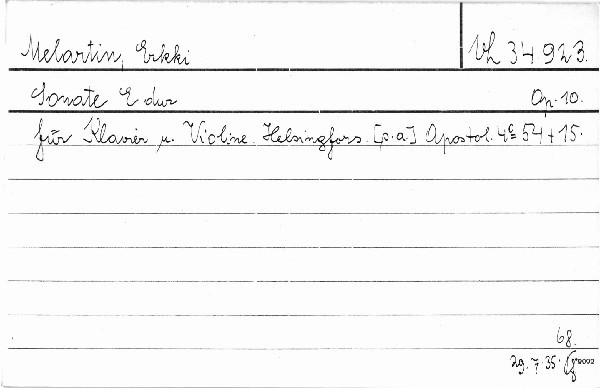 Melartin, Erkki Vh 34923.
Sonate E dur Op. 10.
für Klavier u. Violine. Helsingfors. [s.a.] Apostol. 4° 54+15.
68.
29.7.35.